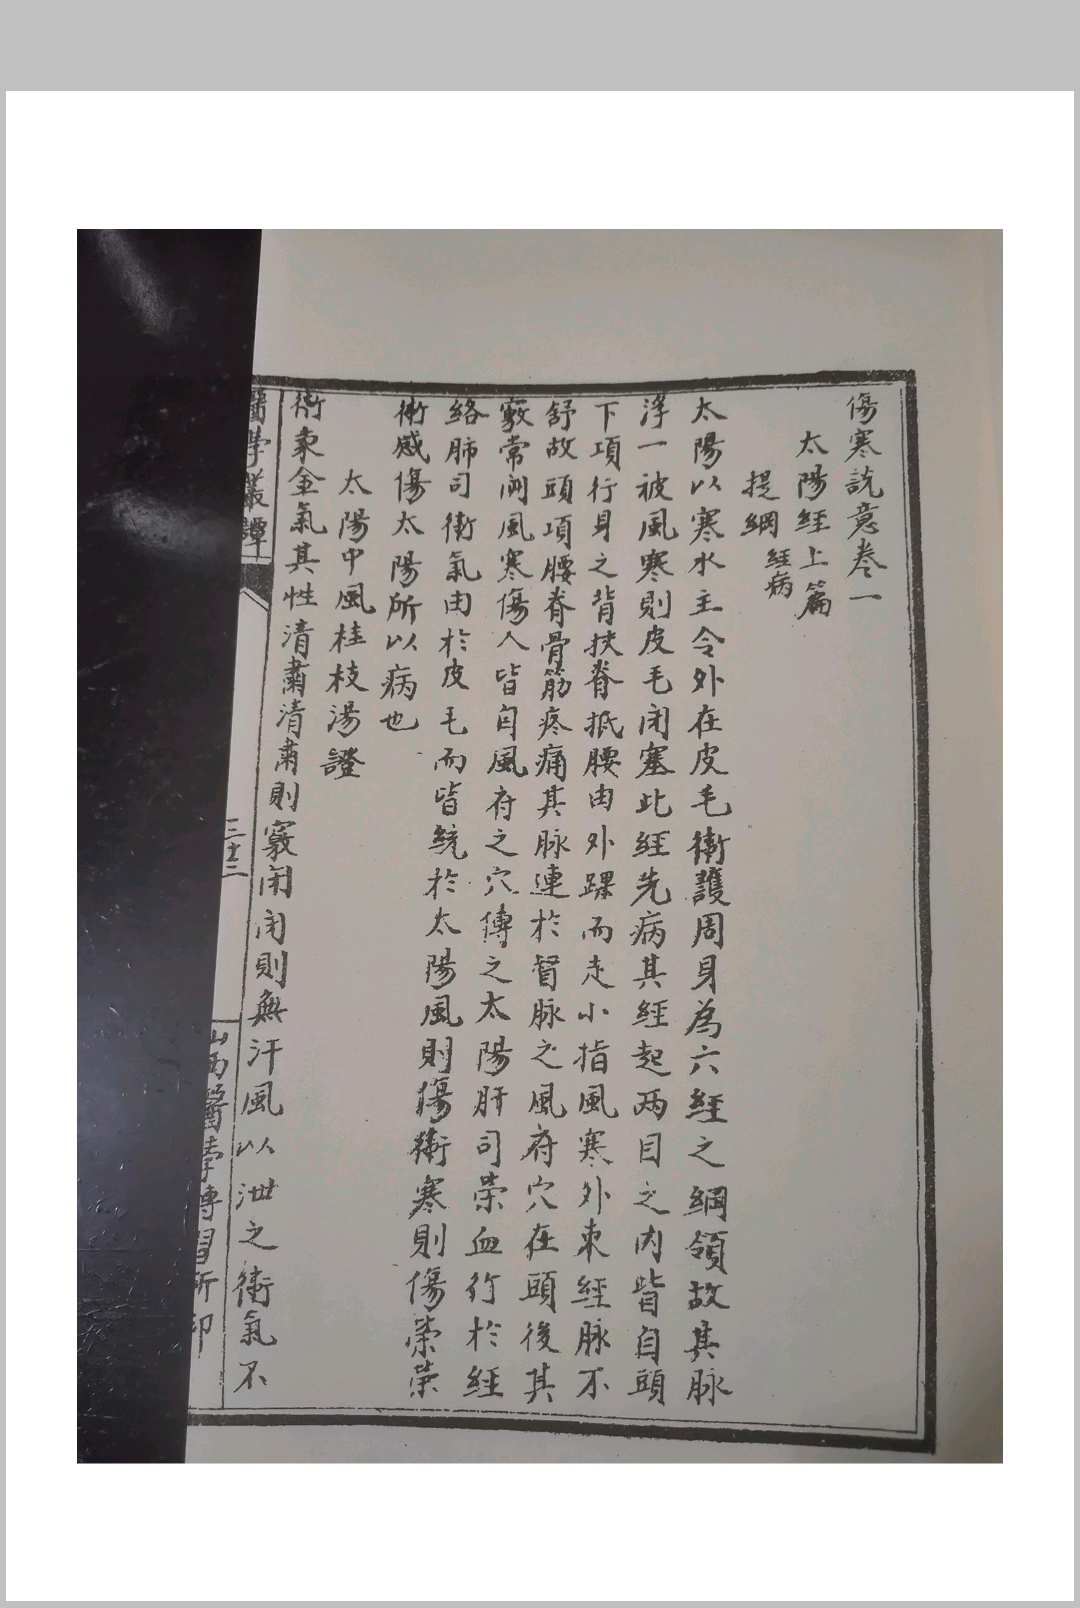 傷寒説意卷一
太陽經上篇
提綱 經病
太陽以寒水主令外在皮毛衛護周身為六經之綱領故其脉
浮一被風寒則皮毛闭塞此經先病其經起两目之内眥自頭
下項行身之背挾脊抵腰由外踝而走小指風寒外束經脉不
舒故頭項腰脊骨筋疼痛其脉連於督脉之風府穴在頭後其
竅常闭風寒傷人皆自風府之穴傳之太陽肝司荣血行於經
絡肺司衛氣由於皮毛而皆統於太陽風則傷衛寒則傷荣荣
衛感傷太陽所以病也
太陽中風桂枝湯證
衛秉金氣其性清肅清肅則竅闭闭則無汗風以泄之衛氣不
醫學叢譚
三十二
山西醫學傳習所印